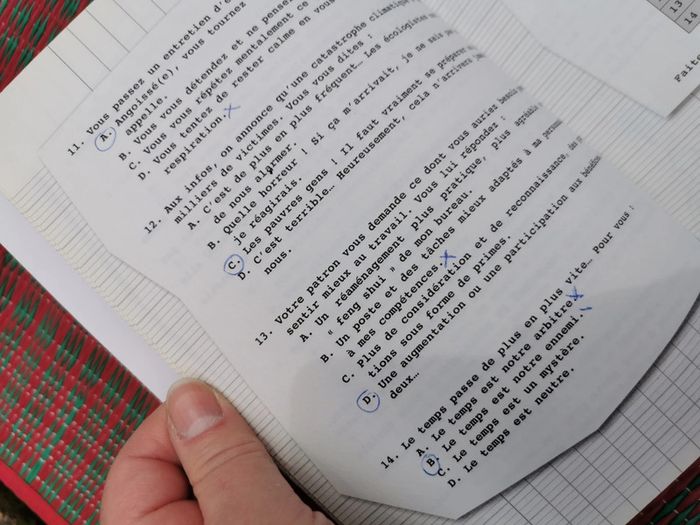 11. Vous passez un entretien d'e
A. Angoissé(e), vous tournez
appelle.
B. Vous vous détendez et ne pense
C. Vous vous répétez mentalement ce
D. Vous tentez de rester calme en vous
respiration.
12. Aux infos, on annonce qu'une catastrophe climatique
milliers de victimes. Vous vous dites :
A. C'est de plus en plus fréquent… Les écologistes
de nous alarmer.
B. Quelle horreur ! Si ça m'arrivait, je ne sais pas
je réagirais.
C. Les pauvres gens ! Il faut vraiment se préparer
D. C'est terrible… Heureusement, cela n'arrivera
nous.
13. Votre patron vous demande ce dont vous auriez besoin
sentir mieux au travail. Vous lui répondez :
A. Un réaménagement plus pratique, plus agréable
" feng shui " de mon bureau.
B. Un poste et des tâches mieux adaptés à ma
à mes compétences.
C. Plus de considération et de reconnaissance,
tions sous forme de primes.
D. Une augmentation ou une participation aux
deux…
14. Le temps passe de plus en plus vite… Pour vous :
A. Le temps est notre arbitre.
B. Le temps est notre ennemi.
C. Le temps est un mystère.
D. Le temps est neutre.
13
14
Faite